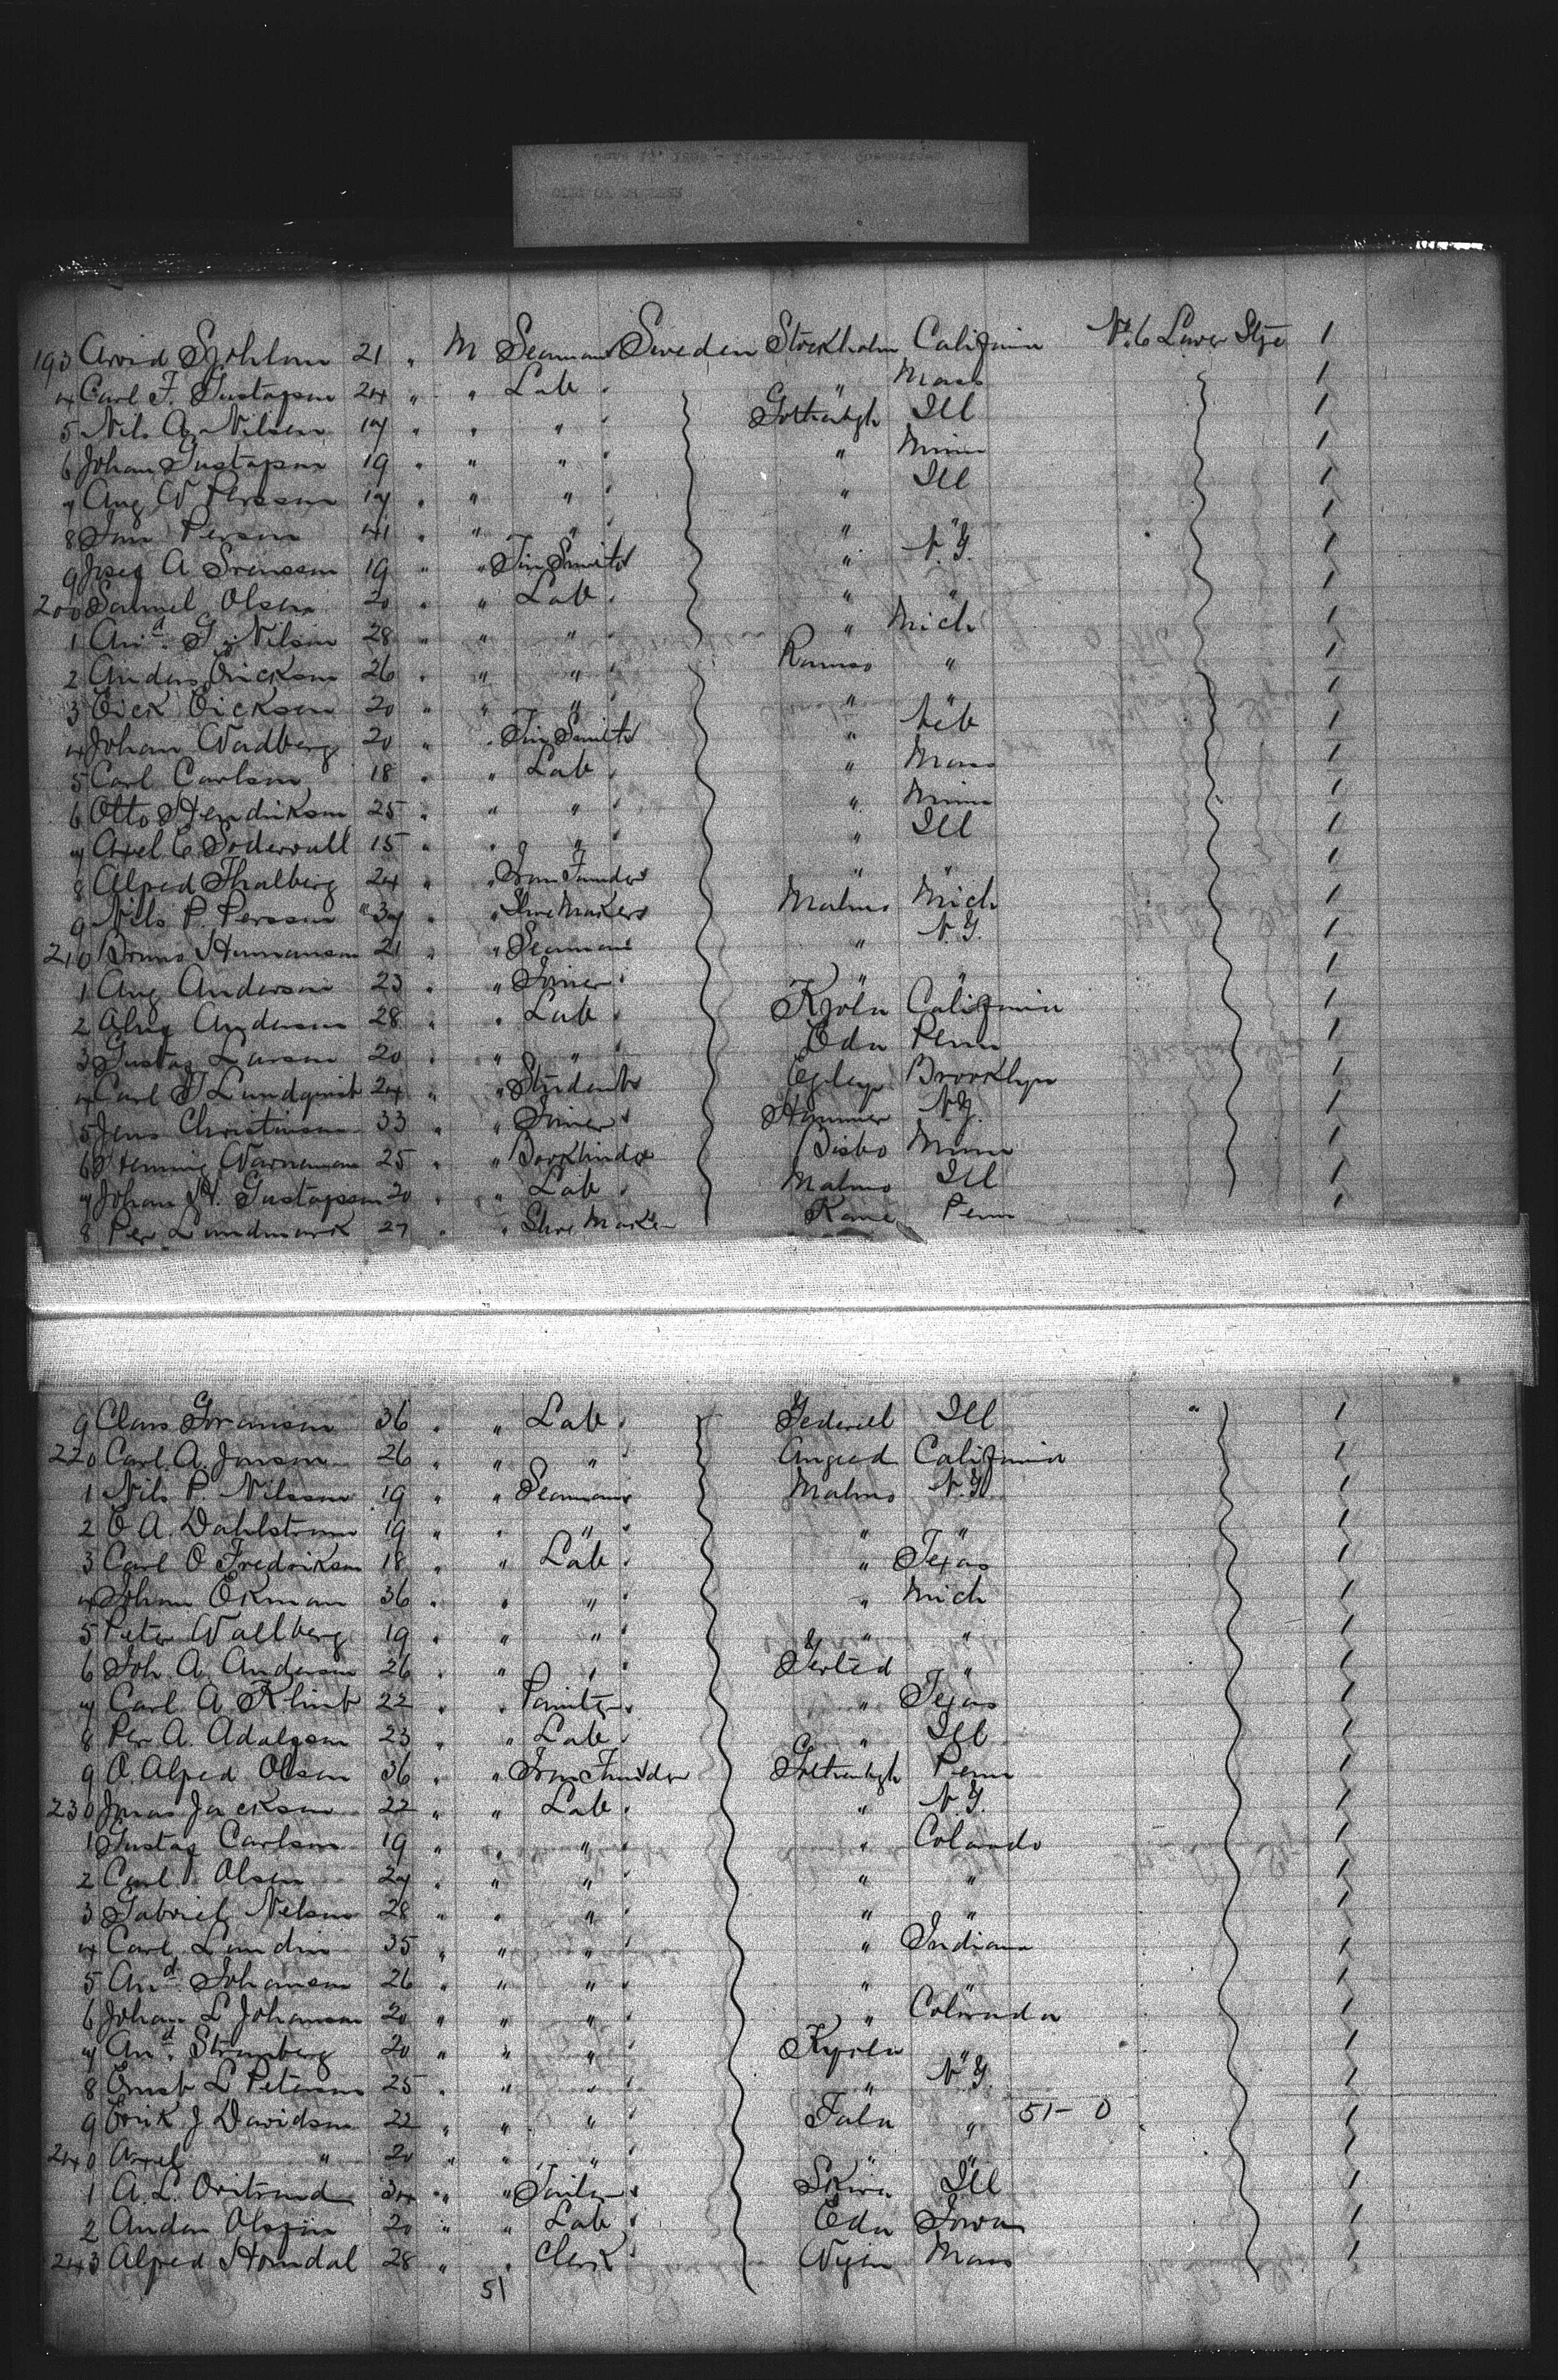 193 Arvid Sjohlm 21 " M Seaman Sweden Stockholm California No. 6 Lower Stge 1
4 Carl F. Gustafson 24 " " Lab " Mass 1
5 Nils A. Nilsen 17 " " " Gothenbgh Ill 1
6 Johan Gustafson 19 " " " " Minn 1
7 Aug W Persson 17 " " " " Ill 1
8 Jon Person 41 " " " " " 1
9 Josef A Svensson 19 " " Tin Smith " N.Y. 1
200 Samuel Olsen 20 " " Lab " " 1
1 And. G. Nilson 28 " " " " Mich 1
2 Anders Erickson 26 " " " " 1
3 Erick Erickson 20 " " " " " 1
4 Johan Wadberg 20 " " Tin Smith " Neb 1
5 Carl Carlson 18 " " Lab " Mass 1
6 Otto Hendrikson 25 " " " " Minn 1
7 Axel C Sodervall 15 " " " " Ill 1
8 Alfred Thalberg 24 " " Iron Founder " " 1
9 Nils P. Persson 37 " " Shoe Maker Malmo Mich 1
210 Bruno Hermanson 21 " " Seaman " N.Y. 1
1 Aug Anderson 23 " " Joiner " " 1
2 Anderson 28 " " Lab Kjoln California 1
3 Gustaf Larson 20 " " " Eda Penn 1
4 Carl F Lundquist 24 " " Student Brooklyn 1
5 Jens Christinsen 33 " " Joiner Hammer N.Y. 1
6 Henning Warnaman 25 " " Bookbinder Bisbo Minn 1
7 Johan A. Gustafsson 20 " " Lab Malmo Ill 1
8 Per Lundmark 27 " " Shoe Maker Kame Penn 1
9 Claus Goranson 36 " " Lab Ill " 1
220 Carl A. Jonson 26 " " " California 1
1 Nils P. Nilsson 19 " " Seaman Malmo N.Y. 1
2 O A. Dahlstrom 19 " " " " " 1
3 Carl O Fredrikson 18 " " Lab " Texas 1
4 Johan Ekman 36 " " " " Mich 1
5 Peter Wallberg 19 " " " " " 1
6 Joh. A. Anderson 26 " " " " 1
7 Carl A Klint 22 " " Painter " Texas 1
8 Per A. Adolfson 23 " " Lab " Ill 1
9 O. Alfred Olson 36 " " Iron Founder Gothenbgh Penn 1
230 Jonas Jackson 22 " " Lab " N.Y. 1
1 Gustaf Carlson 19 " " " " Colorado 1
2 Carl Olsen 27 " " " " " 1
3 Gabriel Nelson 28 " " " " " 1
4 Carl Lundin 35 " " " " Indiana 1
5 And. Johanson 26 " " " " " 1
6 Johan L Johanson 20 " " " " Colorado 1
7 And. Stromberg 20 " " " " 1
8 Ernst L Peterson 25 " " " " N.Y. 1
9 Erik J Davidson 22 " " " Fala " 51 - 0 1
240 Axel " 20 " " " " " 1
1 A. L. 34 " " Tailor Ill 1
2 Anders 20 " " Lab Eda Iowa 1
243 Alfred Homdal 28 " " Clerk Mass 1
51